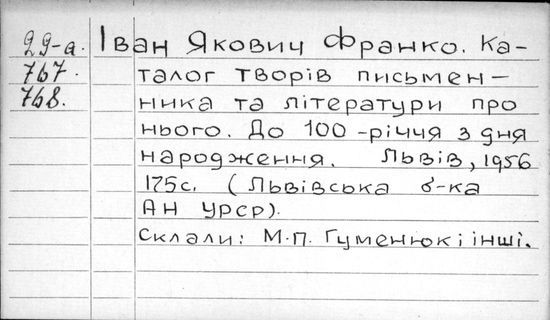 29-а. Іван Якович Франко. Ка-
767. талог творів письмен-
768. ника та літератури про
нього. До 100-річчя з дня
народження. Львів, 1956
175с. (Львівська б-ка
АН УРСР).
Склали: М.П. Гуменюк і інші.